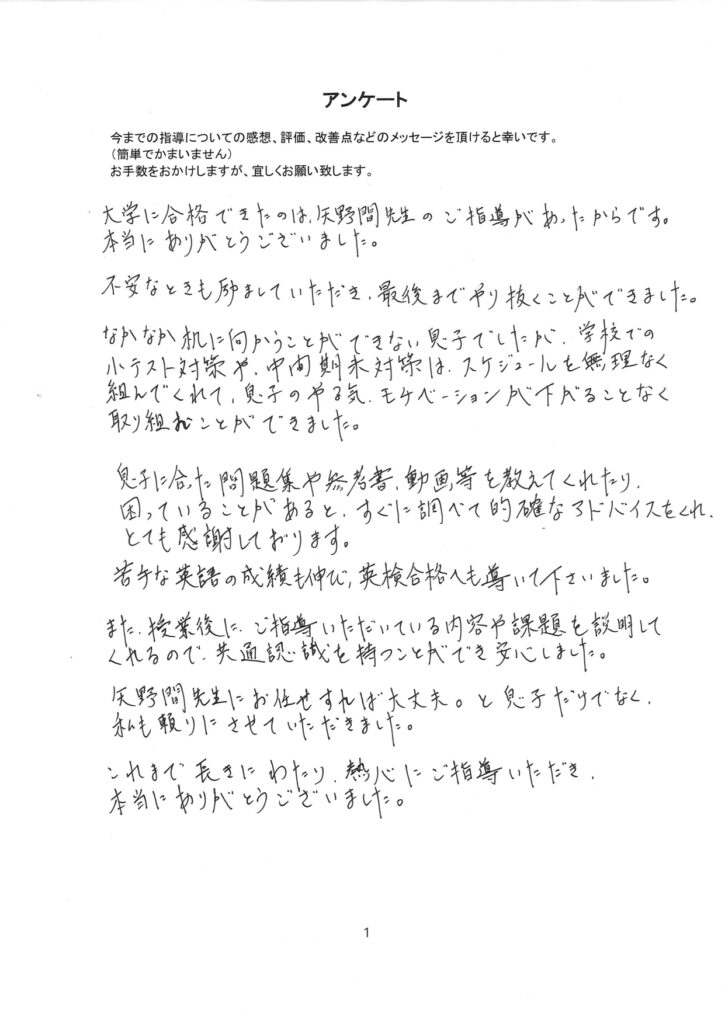 アンケート
今までの指導についての感想、評価、改善点などのメッセージを頂けると幸いです。
（簡単でかまいません）
お手数をおかけしますが、宜しくお願い致します。
大学に合格できたのは、矢野間先生のご指導があったからです。
本当にありがとうございました。
不安なときも励ましていただき、最後までやり抜くことができました。
なかなか机に向かうことができない息子でしたが、学校での
小テスト対策や、中間期末対策は、スケジュールを無理なく
組んでくれて、息子のやる気、モチベーションが下がることなく
取り組むことができました。
息子に合った問題集や参考書、動画等を教えてくれたり、
困っていることがあると、すぐに調べて的確なアドバイスをくれ、
とても感謝しております。
苦手な英語の成績も伸び、英検合格へも導いて下さいました。
また、授業後に、ご指導いただいている内容や課題を説明して
くれるので、共通認識を持つことができ安心しました。
矢野間先生にお任せすれば大丈夫。と息子だけでなく、
私も頼りにさせていただきました。
これまで長きにわたり、熱心にご指導いただき、
本当にありがとうございました。
1